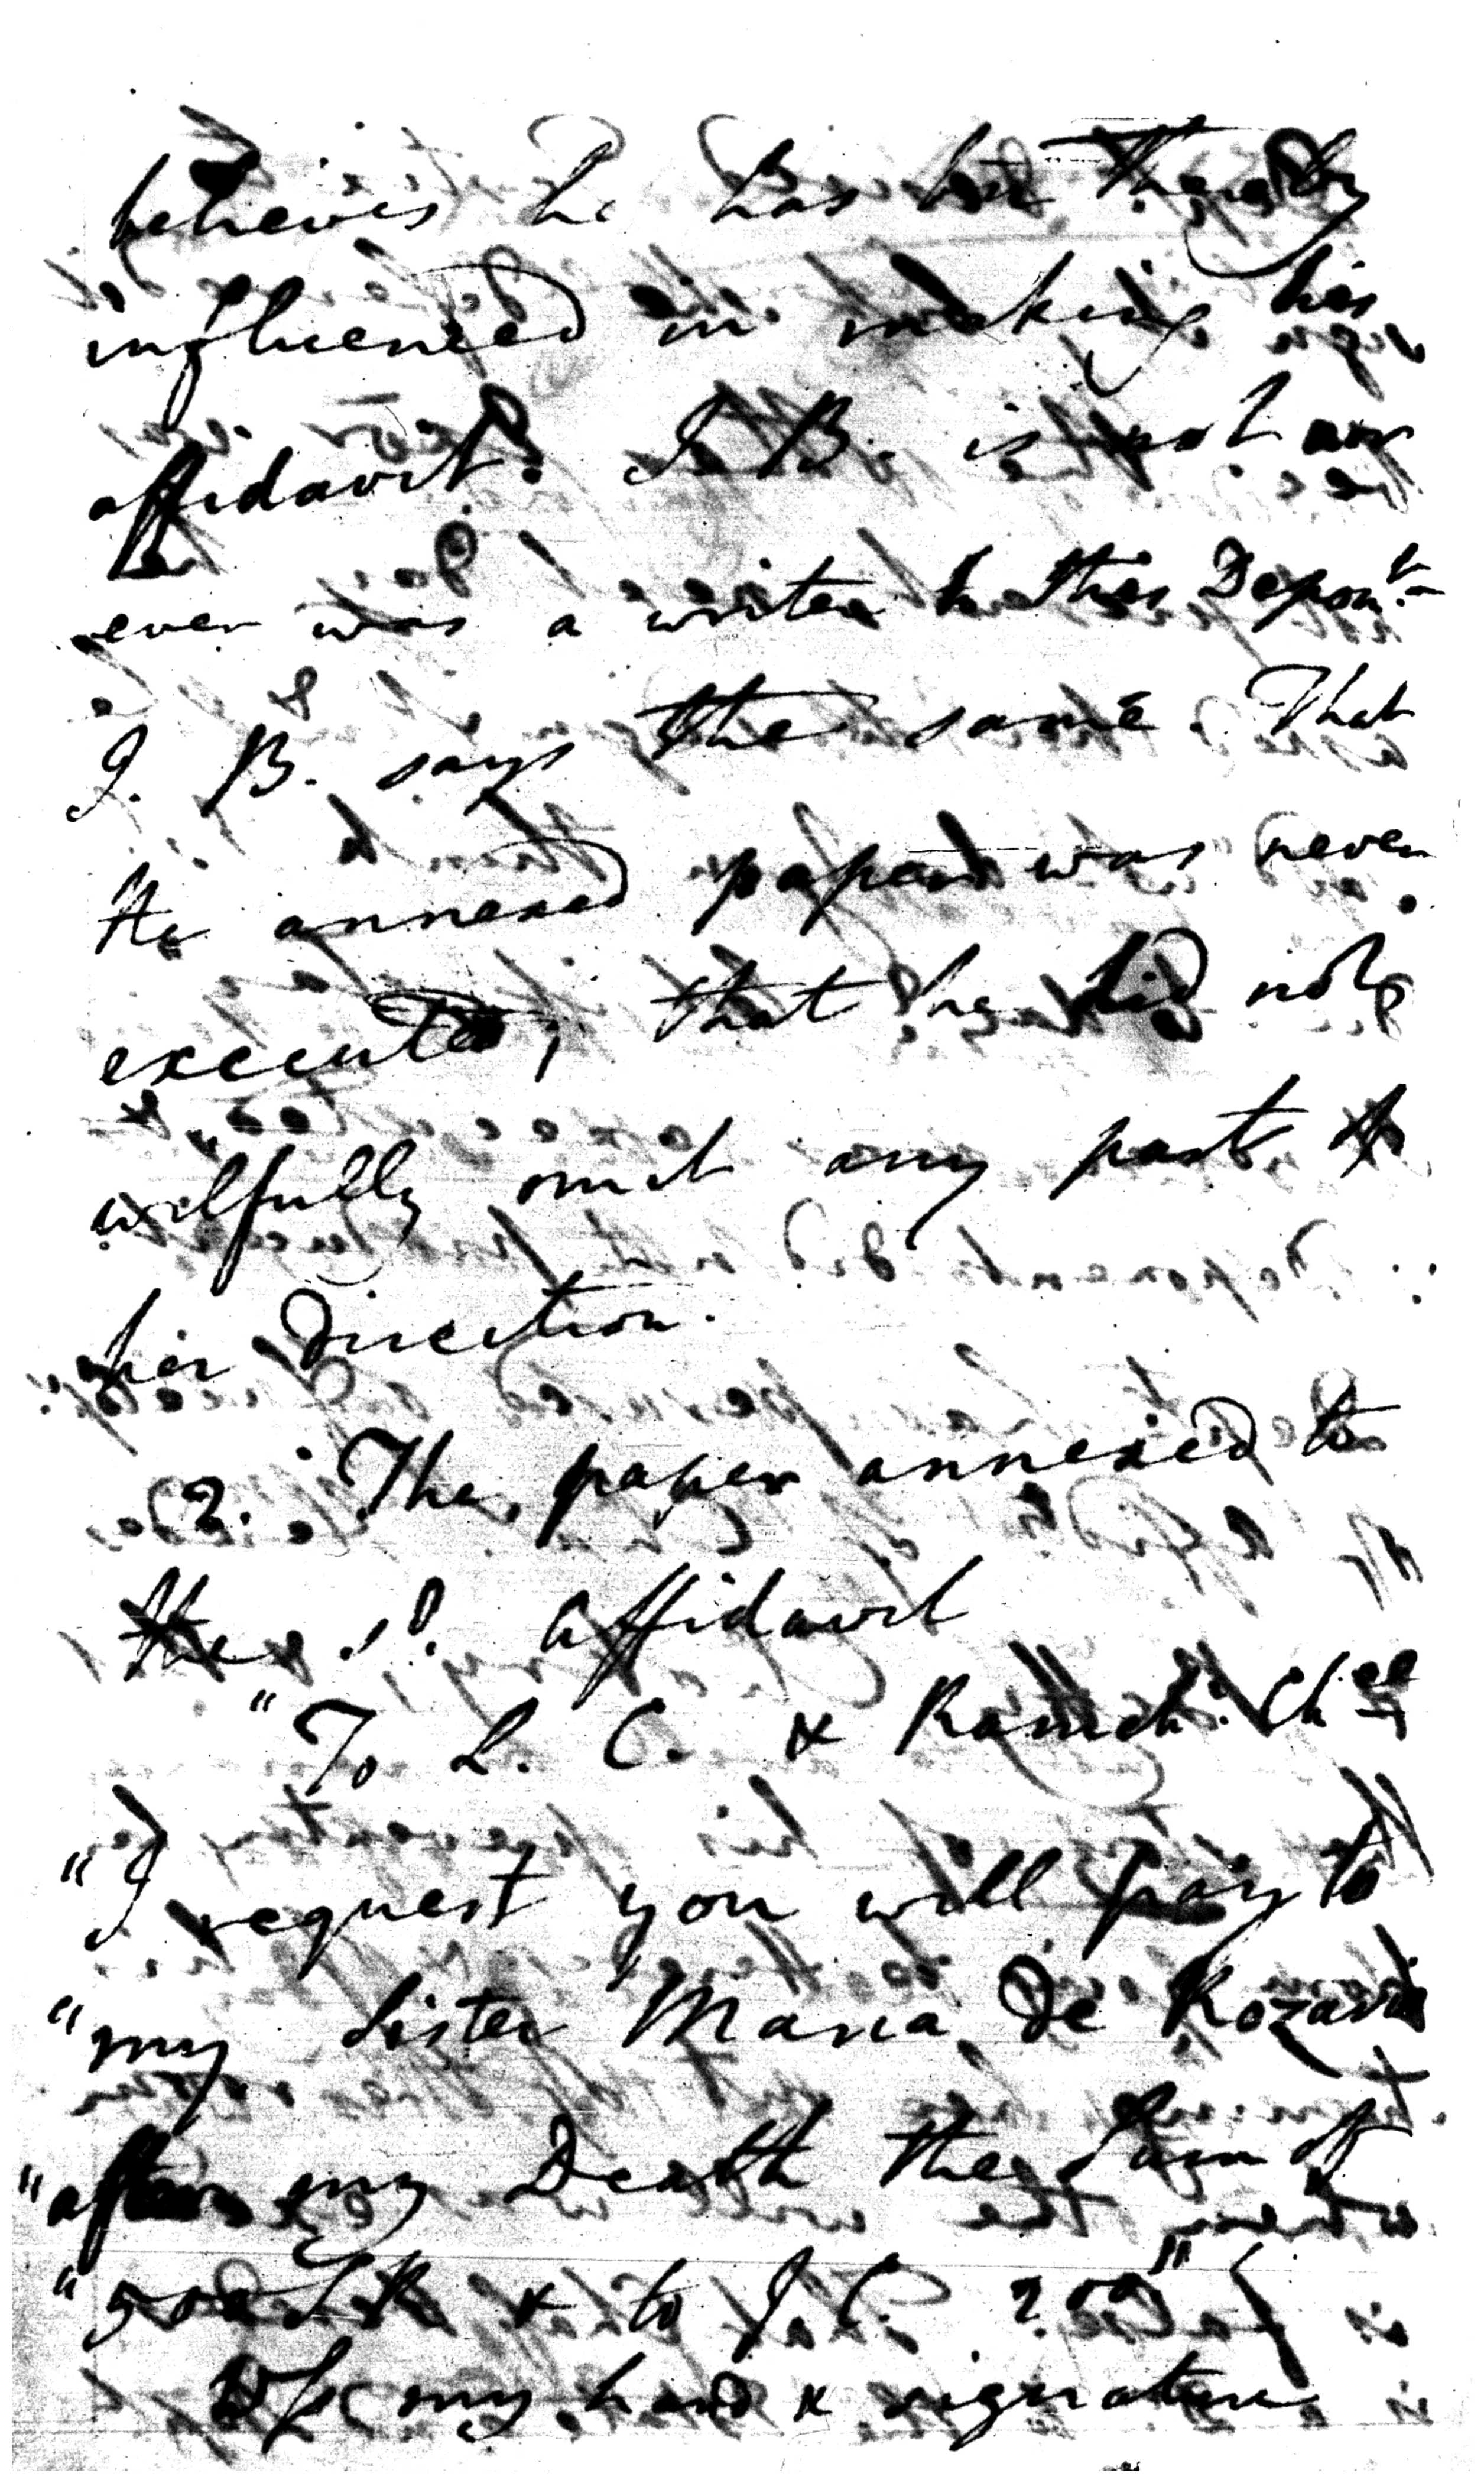 believes he has been thereby
influenced in making his
affidavit. J. B. is not nor
ever was a writer to this Depon.t
J. B. says the same. That
the annexed paper was never
executed; that he did not
wilfully omit any part of
his Direction.
2. The paper annexed to
the sd. affidavit
"To L. C. & Ramch. Ch
"I request you will pay to
"my Sister Maria De Rozario
"after my Death the Sum of
" & to J. C. 200"
my hand & signature